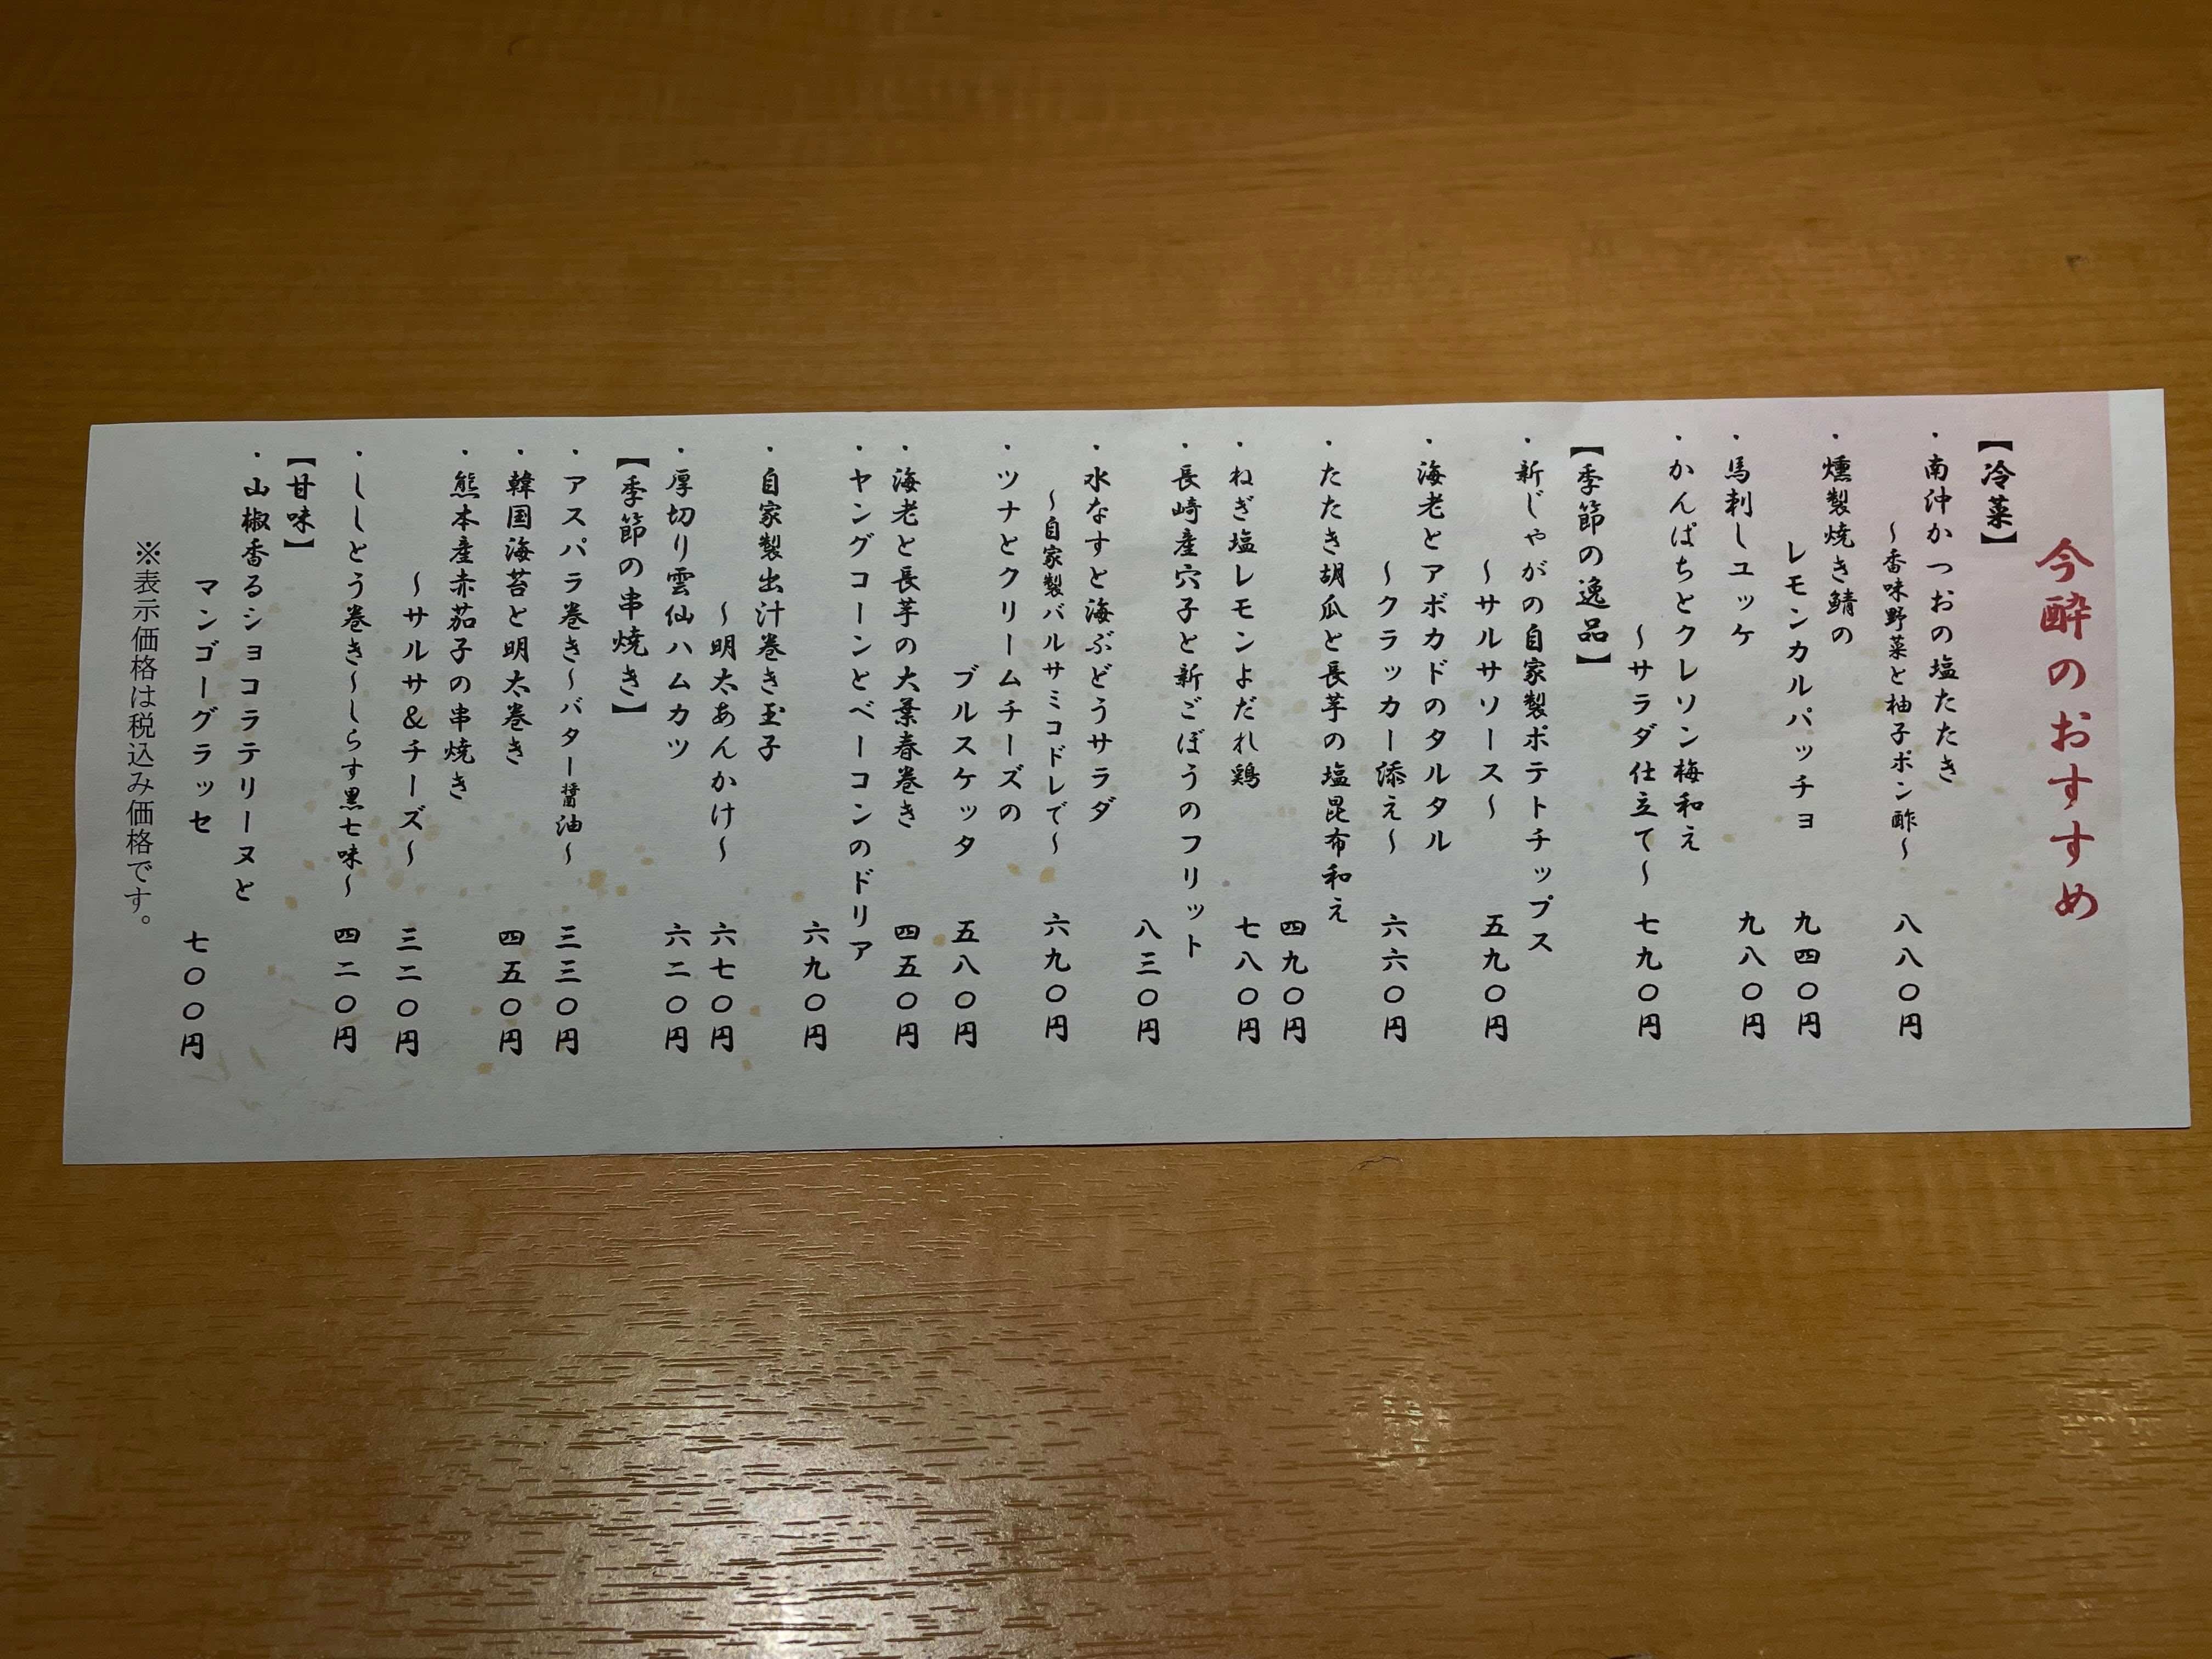 今酔のおすすめ
【冷菜】
・南沖かつおの塩たたき
～香味野菜と柚子ポン酢～ 八八〇円
・燻製焼き鯖の
レモンカルパッチョ 九四〇円
・馬刺しユッケ 九八〇円
・かんぱちとクレソン梅和え
～サラダ仕立て～ 七九〇円
【季節の逸品】
・新じゃがの自家製ポテトチップス
～サルサソース～ 五九〇円
・海老とアボカドのタルタル
～クラッカー添え～ 六六〇円
・たたき胡瓜と長芋の塩昆布和え
四九〇円
・ねぎ塩レモンよだれ鶏 七八〇円
・長崎産穴子と新ごぼうのフリット
八三〇円
・水なすと海ぶどうサラダ
～自家製バルサミコドレで～ 六九〇円
・ツナとクリームチーズの
ブルスケッタ 五八〇円
・海老と長芋の大葉春巻き 四五〇円
・ヤングコーンとベーコンのドリア
六九〇円
・自家製出汁巻き玉子
～明太あんかけ～ 六七〇円
・厚切り雲仙ハムカツ 六二〇円
【季節の串焼き】
・アスパラ巻き～バター醤油～ 三三〇円
・韓国海苔と明太巻き 四五〇円
・熊本産赤茄子の串焼き
～サルサ&チーズ～ 三二〇円
・ししとう巻き～しらす黒七味～ 四二〇円
【甘味】
・山椒香るショコラテリーヌと
マンゴーグラッセ 七〇〇円
※表示価格は税込み価格です。